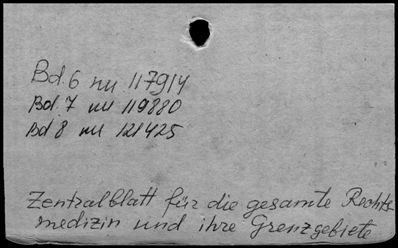 Bd. 6 nu 117914
Bd. 7 nu 119880
Bd 8 nu 121425
Zentralblatt für die gesamte Rechts
medizin und ihre Grenzgebiete